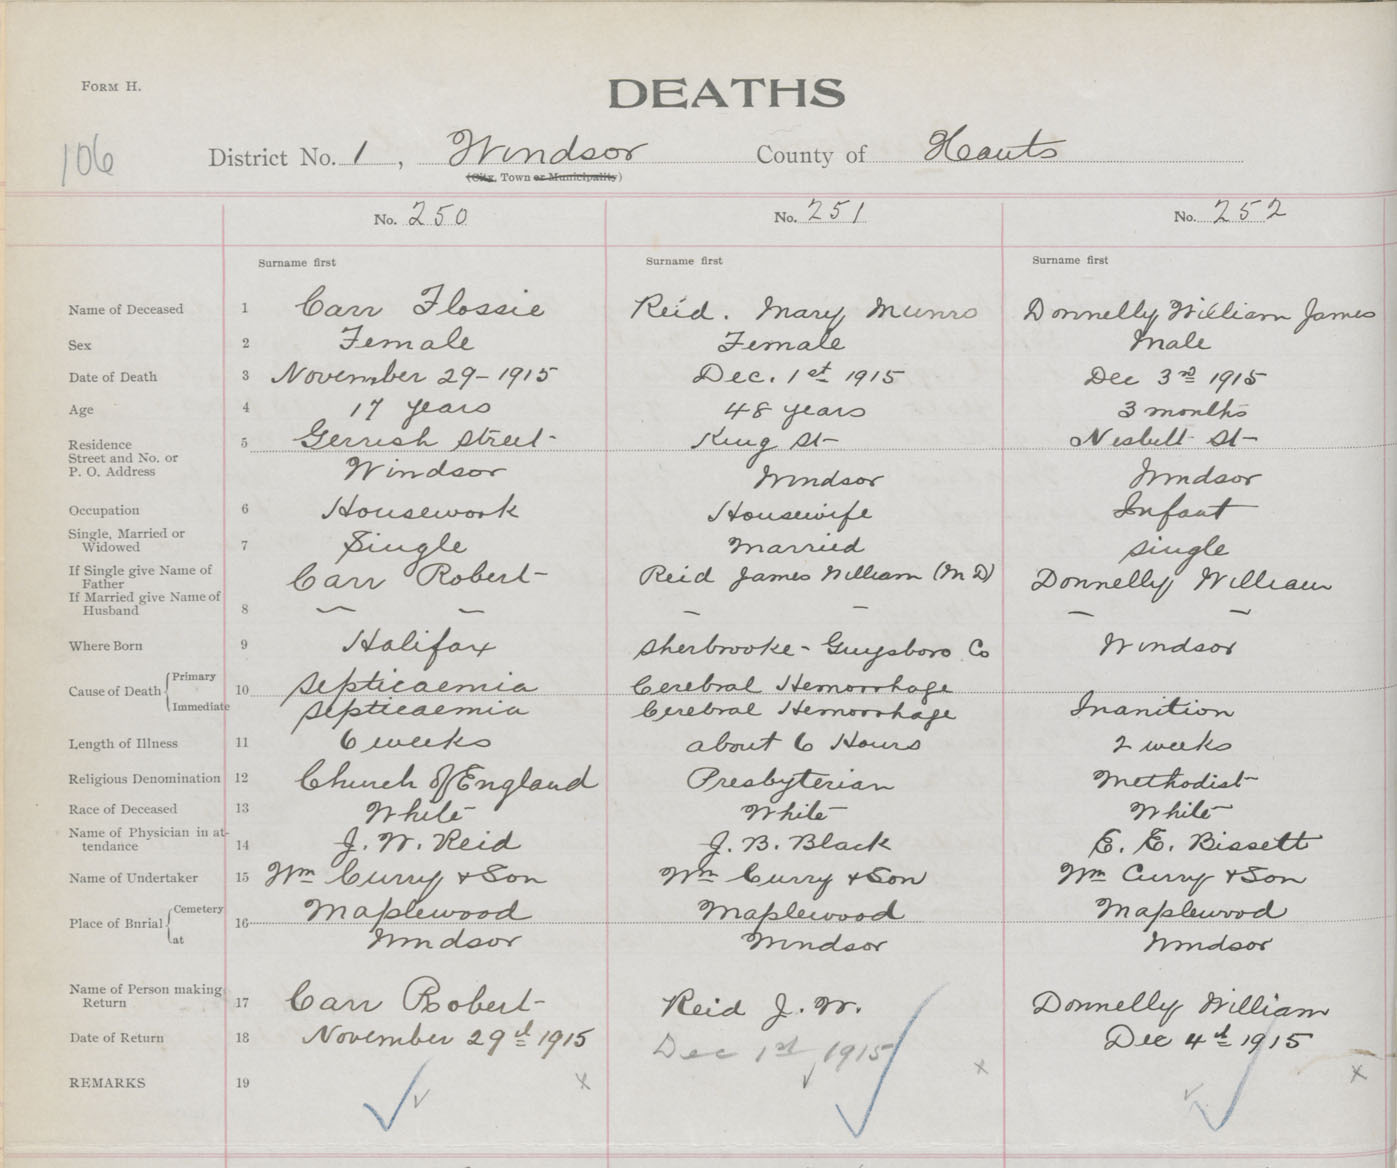 FORM H.
DEATHS
106
District No. 1, Windsor County of Hants
(City, Town or Municipality)
No. 250 No. 251 No. 252
Surname first Surname first Surname first
Name of Deceased 1 Carr Flossie Reid. Mary Munro Donnelly William James
Sex 2 Female Female Male
Date of Death 3 November 29-1915 Dec. 1st 1915 Dec 3rd 1915
Age 4 17 years 48 years 3 months
Residence 5 Gerrish Street King St Nesbitt St
Street and No. or
P. O. Address Windsor Windsor Windsor
Occupation 6 Housework Housewife Infant
Single, Married or
Widowed 7 Single Married single
If Single give Name of
Father Carr Robert Reid James William (M D) Donnelly William
If Married give Name of
Husband 8 — — — — — —
Where Born 9 Halifax Sherbrooke - Guysboro Co Windsor
Cause of Death Primary 10 Septicaemia Cerebral Hemorrhage
Immediate Septicaemia Cerebral Hemorrhage Inanition
Length of Illness 11 6 weeks about 6 Hours 2 weeks
Religious Denomination 12 Church of England Presbyterian Methodist
Race of Deceased 13 White White White
Name of Physician in at-
tendance 14 J. W. Reid J. B. Black E. E. Bissett
Name of Undertaker 15 Wm Curry + Son Wm Curry + Son Wm Curry + Son
Place of Burial Cemetery 16 Maplewood Maplewood Maplewood
at Windsor Windsor Windsor
Name of Person making
Return 17 Carr Robert Reid J. W. Donnelly William
Date of Return 18 November 29th 1915 Dec 1st 1915 Dec 4th 1915
REMARKS 19 x x x